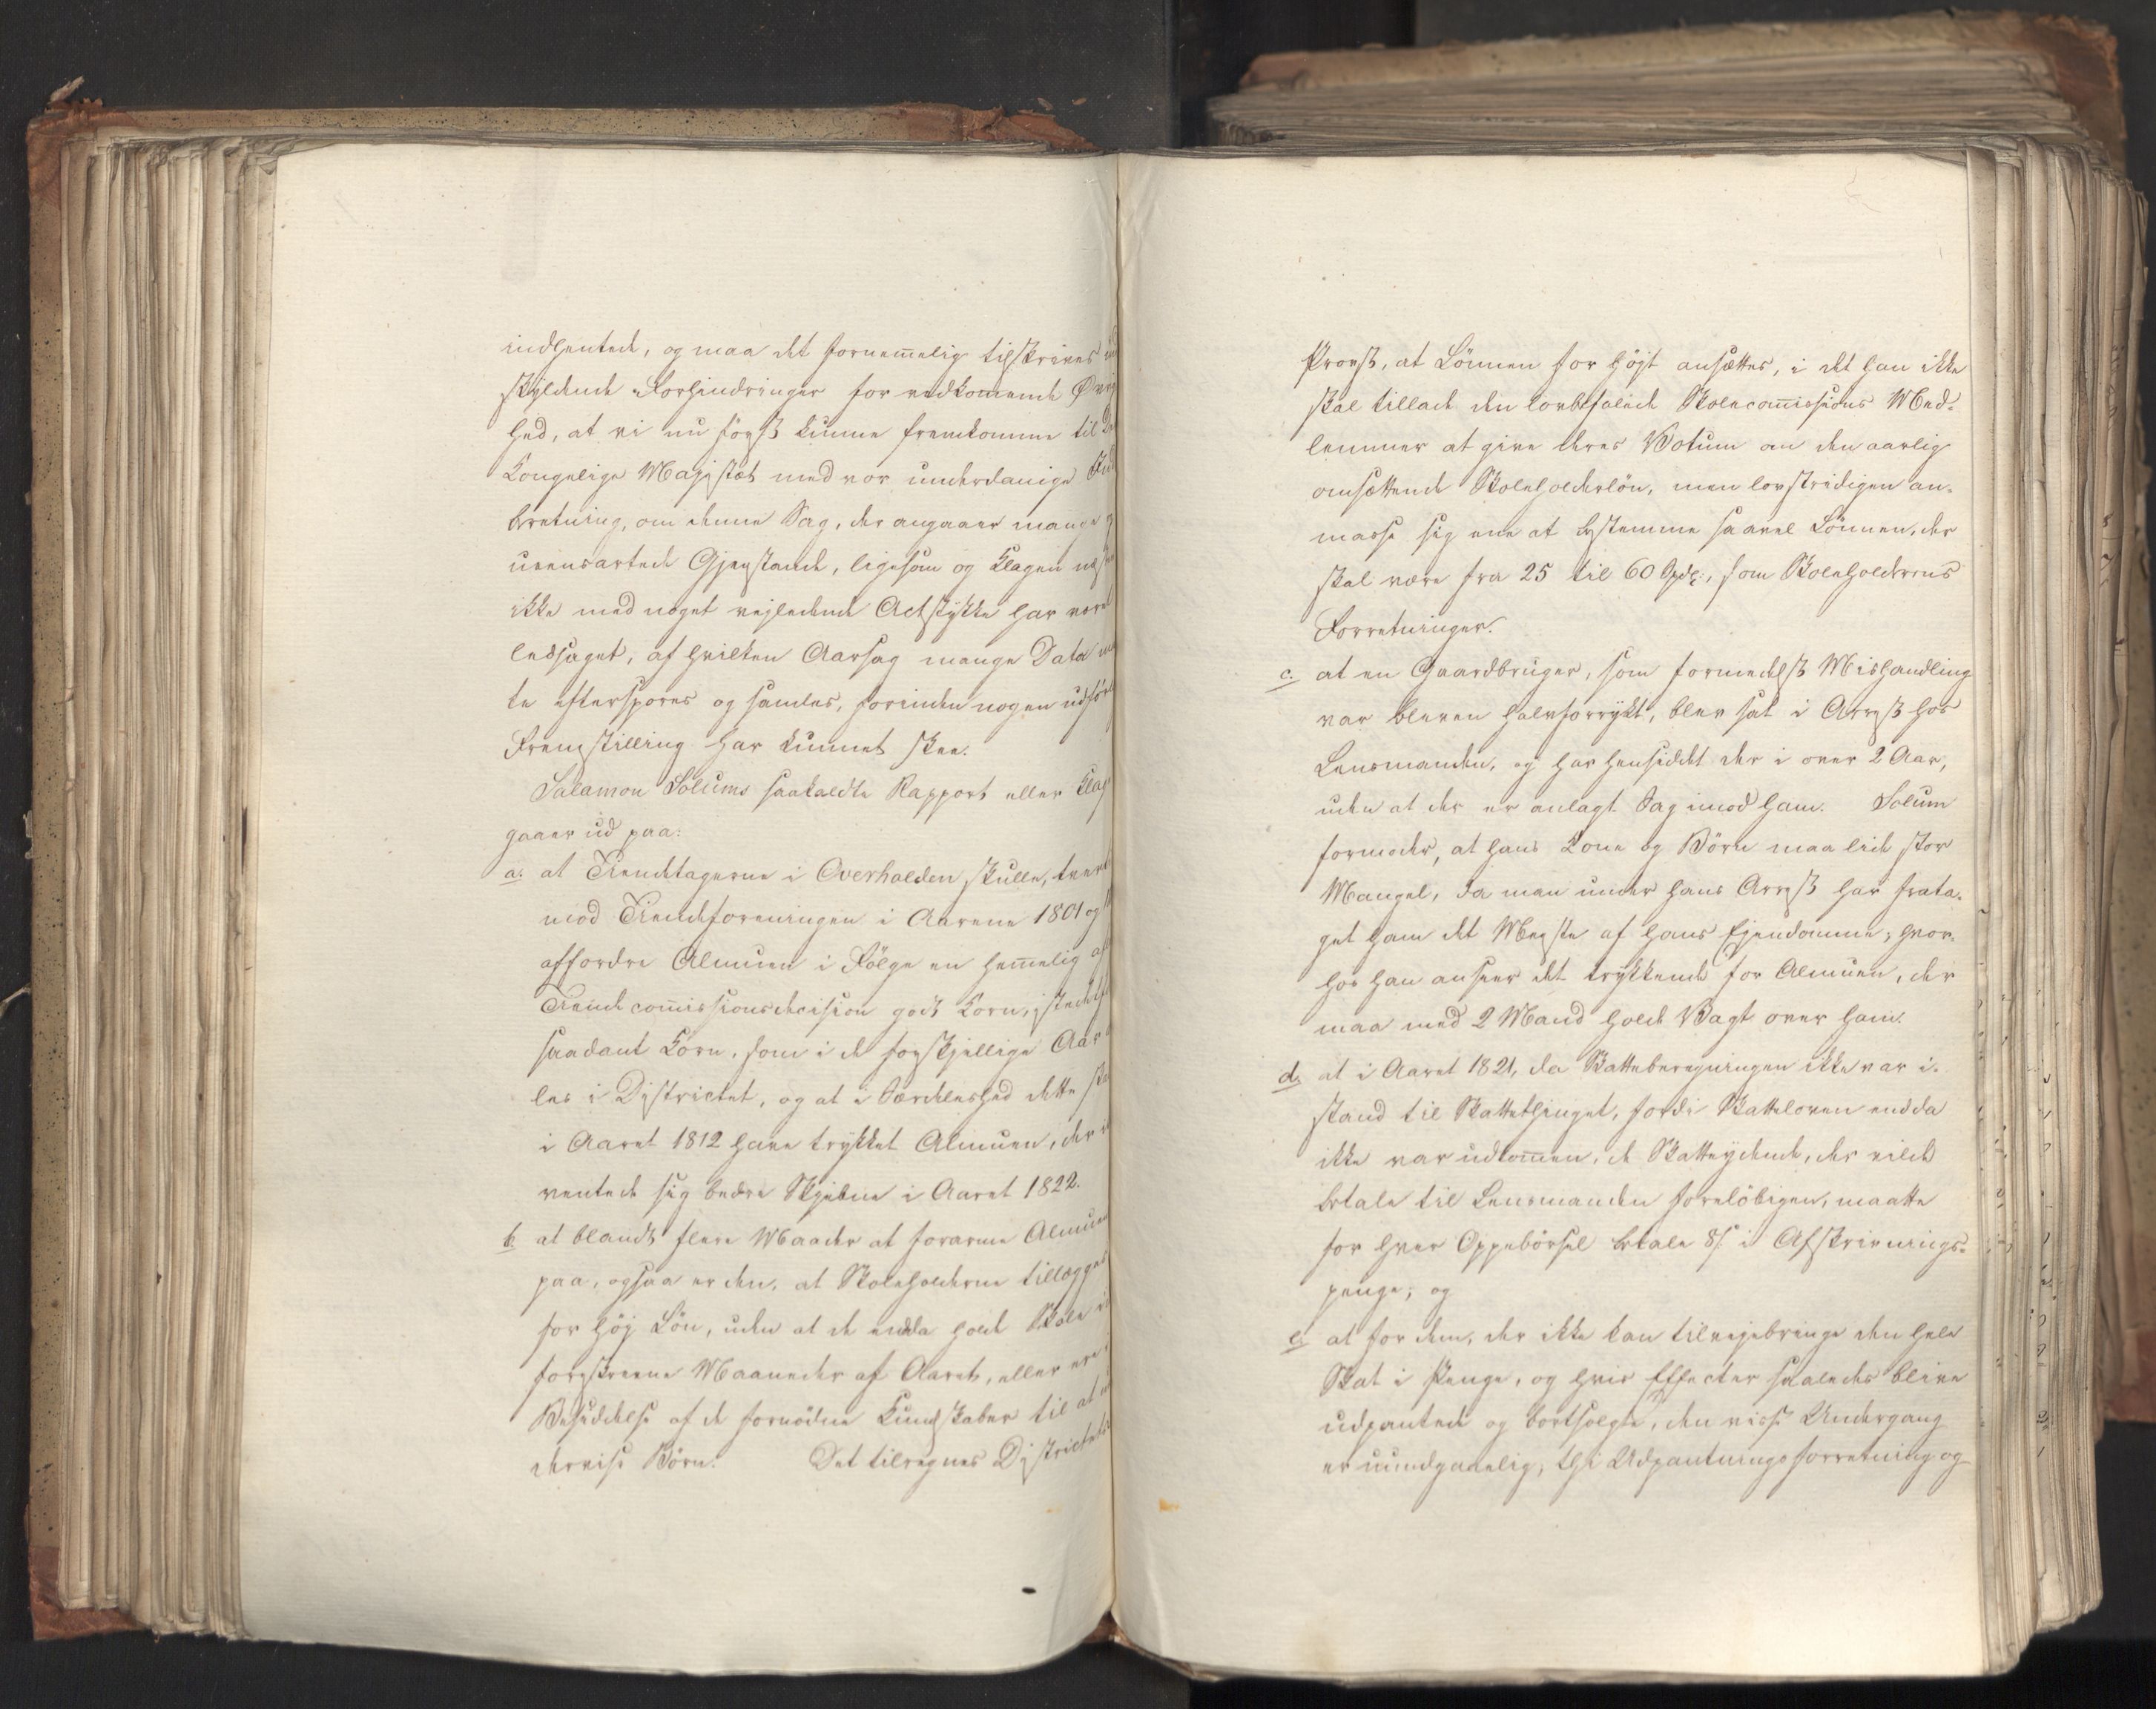 indhentede, og maa det fornemmelig tilskrives
skyldende Forhindringer for vedkommende Øvrig
hed, at vi nu først kunne fremkomme til
Kongelige Majestæt med vor underdanige Ind
bretning, om denne Sag, der angaaer mange
ueensartede Gjenstande, ligesom og Klagen
ikke med noget vejledende Actstykke har vore
ledsaget, af hvilken Aarsag mange Data
te efterspores og samles, forinden nogen udför
Fremstilling har kunnet skee.
Salamon Solums saakaldte Rapport eller Klag
gaaer ud paa:
a. at Tiendetagerne i Overhalden skulle, tvert
mod Tiendeforeningen i Aarene 1801 og
affordre Almuen i Følge en hemmelig
Tiendecommissionsdecision godt Korn, istedetf
saadant Korn, som i de forskjellige Aar
les i Districtet, og at i Særdeleshed dette
i Aaret 1812 have trykket Almuen, der
ventede sig bedre Skjebne i Aaret 1822.
b. at blandt flere Maader at forarme Almuen
paa, ogsaa er den, at Skoleholderne tillægges
for høj Lön, uden at de endda holde Skole
foreskrevne Maaneder af Aaret, eller ere
Besiddelse af de fornödne Kundskaber til at
dervise Börn. Det tilregnes Districtets
Provst, at Lönnen for højt ansættes, i det han ikke
skal tillade den lovbefalede Skolecommissions Med-
lemmer at give deres Votum om den aarlig
omsættende Skoleholderlön, men lovstridigen an-
masse sig ene at bestemme saavel Lönnen, der
skal være fra 25 til 60 Spdlr., som Skoleholderens
Forretninger.
c. at en Gaardbruger, som formedelst Mishandling
var bleven halvforrykt, blev sat i Arrest hos
Lensmanden, og har hensiddet der i over 2 Aar,
uden at der er anlagt Sag imod ham. Solum
formoder, at hans Kone og Börn maa lide stor
Mangel, da man under hans Arrest har frata-
get ham det Meste af hans Ejendomme; hvor-
hos han anseer det trykkende for Almuen, der
maa med 2 Mand holde Vagt over ham.
d. at i Aaret 1821, da Skatteberegningen ikke var i
stand til Skattethinget, fordi Skatteloven endda
ikke var udkommen, de Skatteydende, der vilde
betale til Lensmanden foreløbigen, maatte
for hver Oppebörsel betale 8 s i Afskrivnings-
penge; og
e. at for dem, der ikke kan tilvejebringe den hele
Skat i Penge, og hvis Effecter saaledes blive
udpantede og bortsolgte, den visse Undergang
er uundgaaelig, thi Udpantningsforretning og